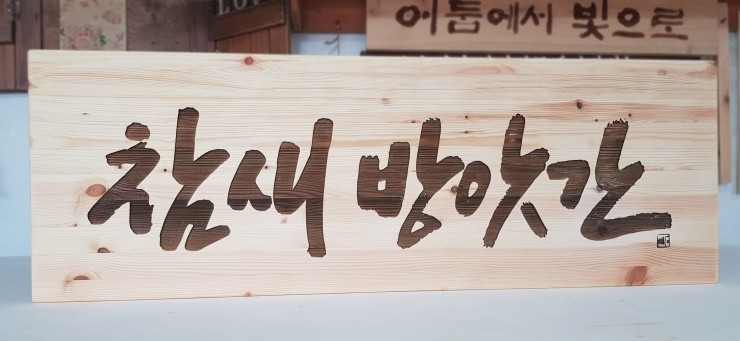 LOVE
어둠에서 빛으로
참새 방앗간